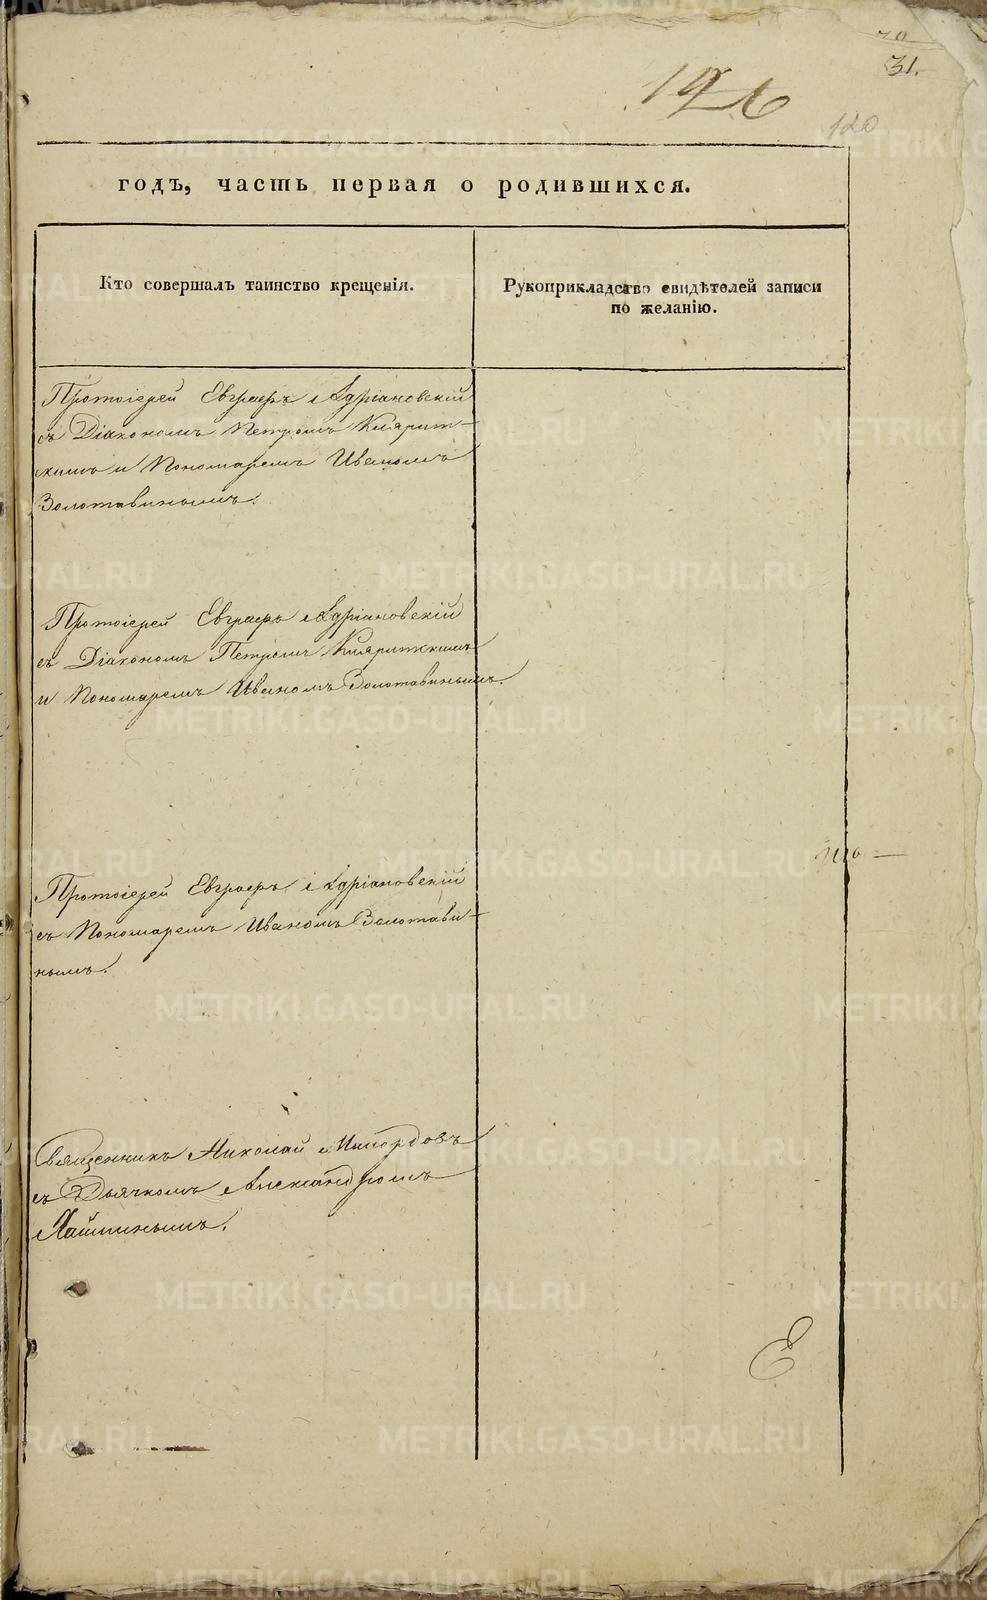 31.
120
годъ, часть первая о родившихся.
Кто совершалъ таинство крещенія.
Рукоприкладство свидѣтелей записи
по желанію.
Протоіерей Евграфъ Адріановскій
съ Діакономъ Петромъ Кляритскимъ
и Пономаремъ Иваномъ
Золотавинымъ.
Протоіерей Евграфъ Адріановскій
съ Діакономъ Петромъ
и Пономаремъ Иваномъ Золотавинымъ.
Протоіерей Евграфъ Адріановскій
съ Пономаремъ Иваномъ Золотави-
нымъ.
Священникъ Николай
съ Дьячкомъ Александромъ
METRIKI.GASO-URAL.RU